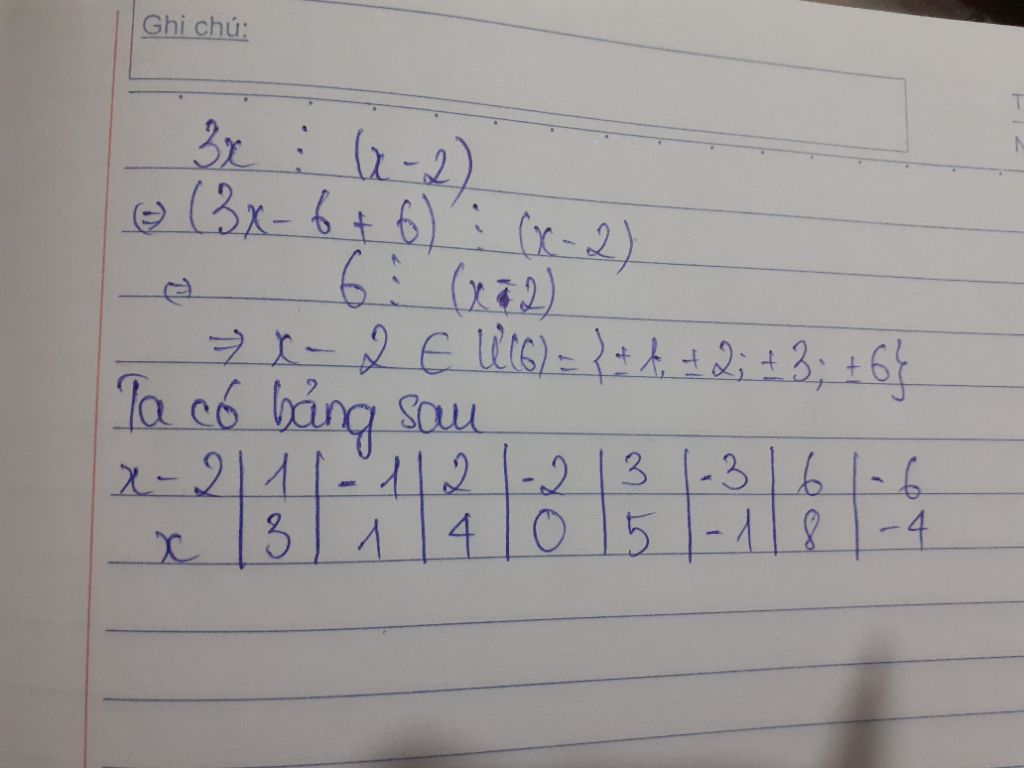 Ghi chú:
T
N
3x ⋮ (x - 2)
⇔ (3x - 6 + 6) ⋮ (x - 2)
⇔ 6 ⋮ (x - 2)
⇒ x - 2 ∈ Ư(6) = {±1; ±2; ±3; ±6}
Ta có bảng sau
x - 2 | 1 | - 1 | 2 | - 2 | 3 | - 3 | 6 | - 6
x | 3 | 1 | 4 | 0 | 5 | - 1 | 8 | - 4